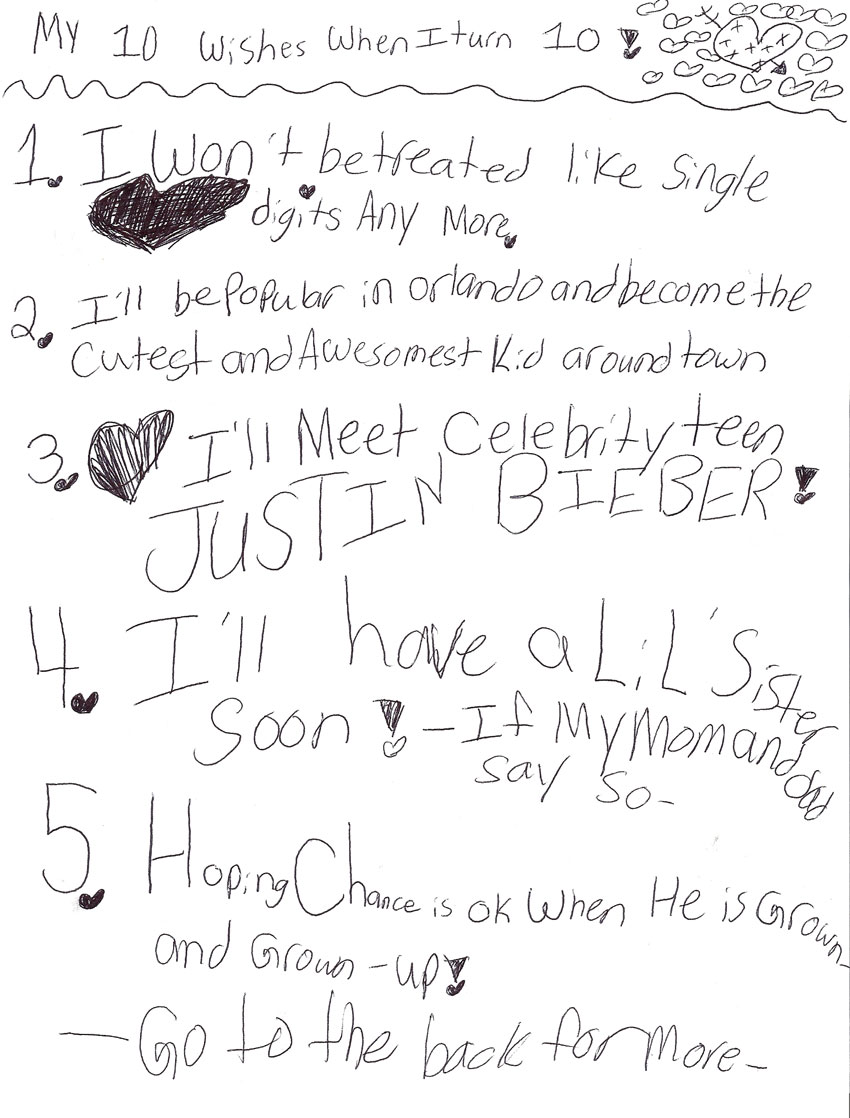 My 10 Wishes When I turn 10!
1. I Won't be treated like Single
digits Any More.
2. I'll be Popular in Orlando and become the
Cutest and Awesomest Kid around town
3. I'll Meet Celebrity teen
JUSTIN BIEBER!
4. I'll have a LiL' Sister
Soon! - If My Mom and dad
say so-
5. Hoping Chance is ok When He is Grown-
and Grown-up!
- Go to the back for More-